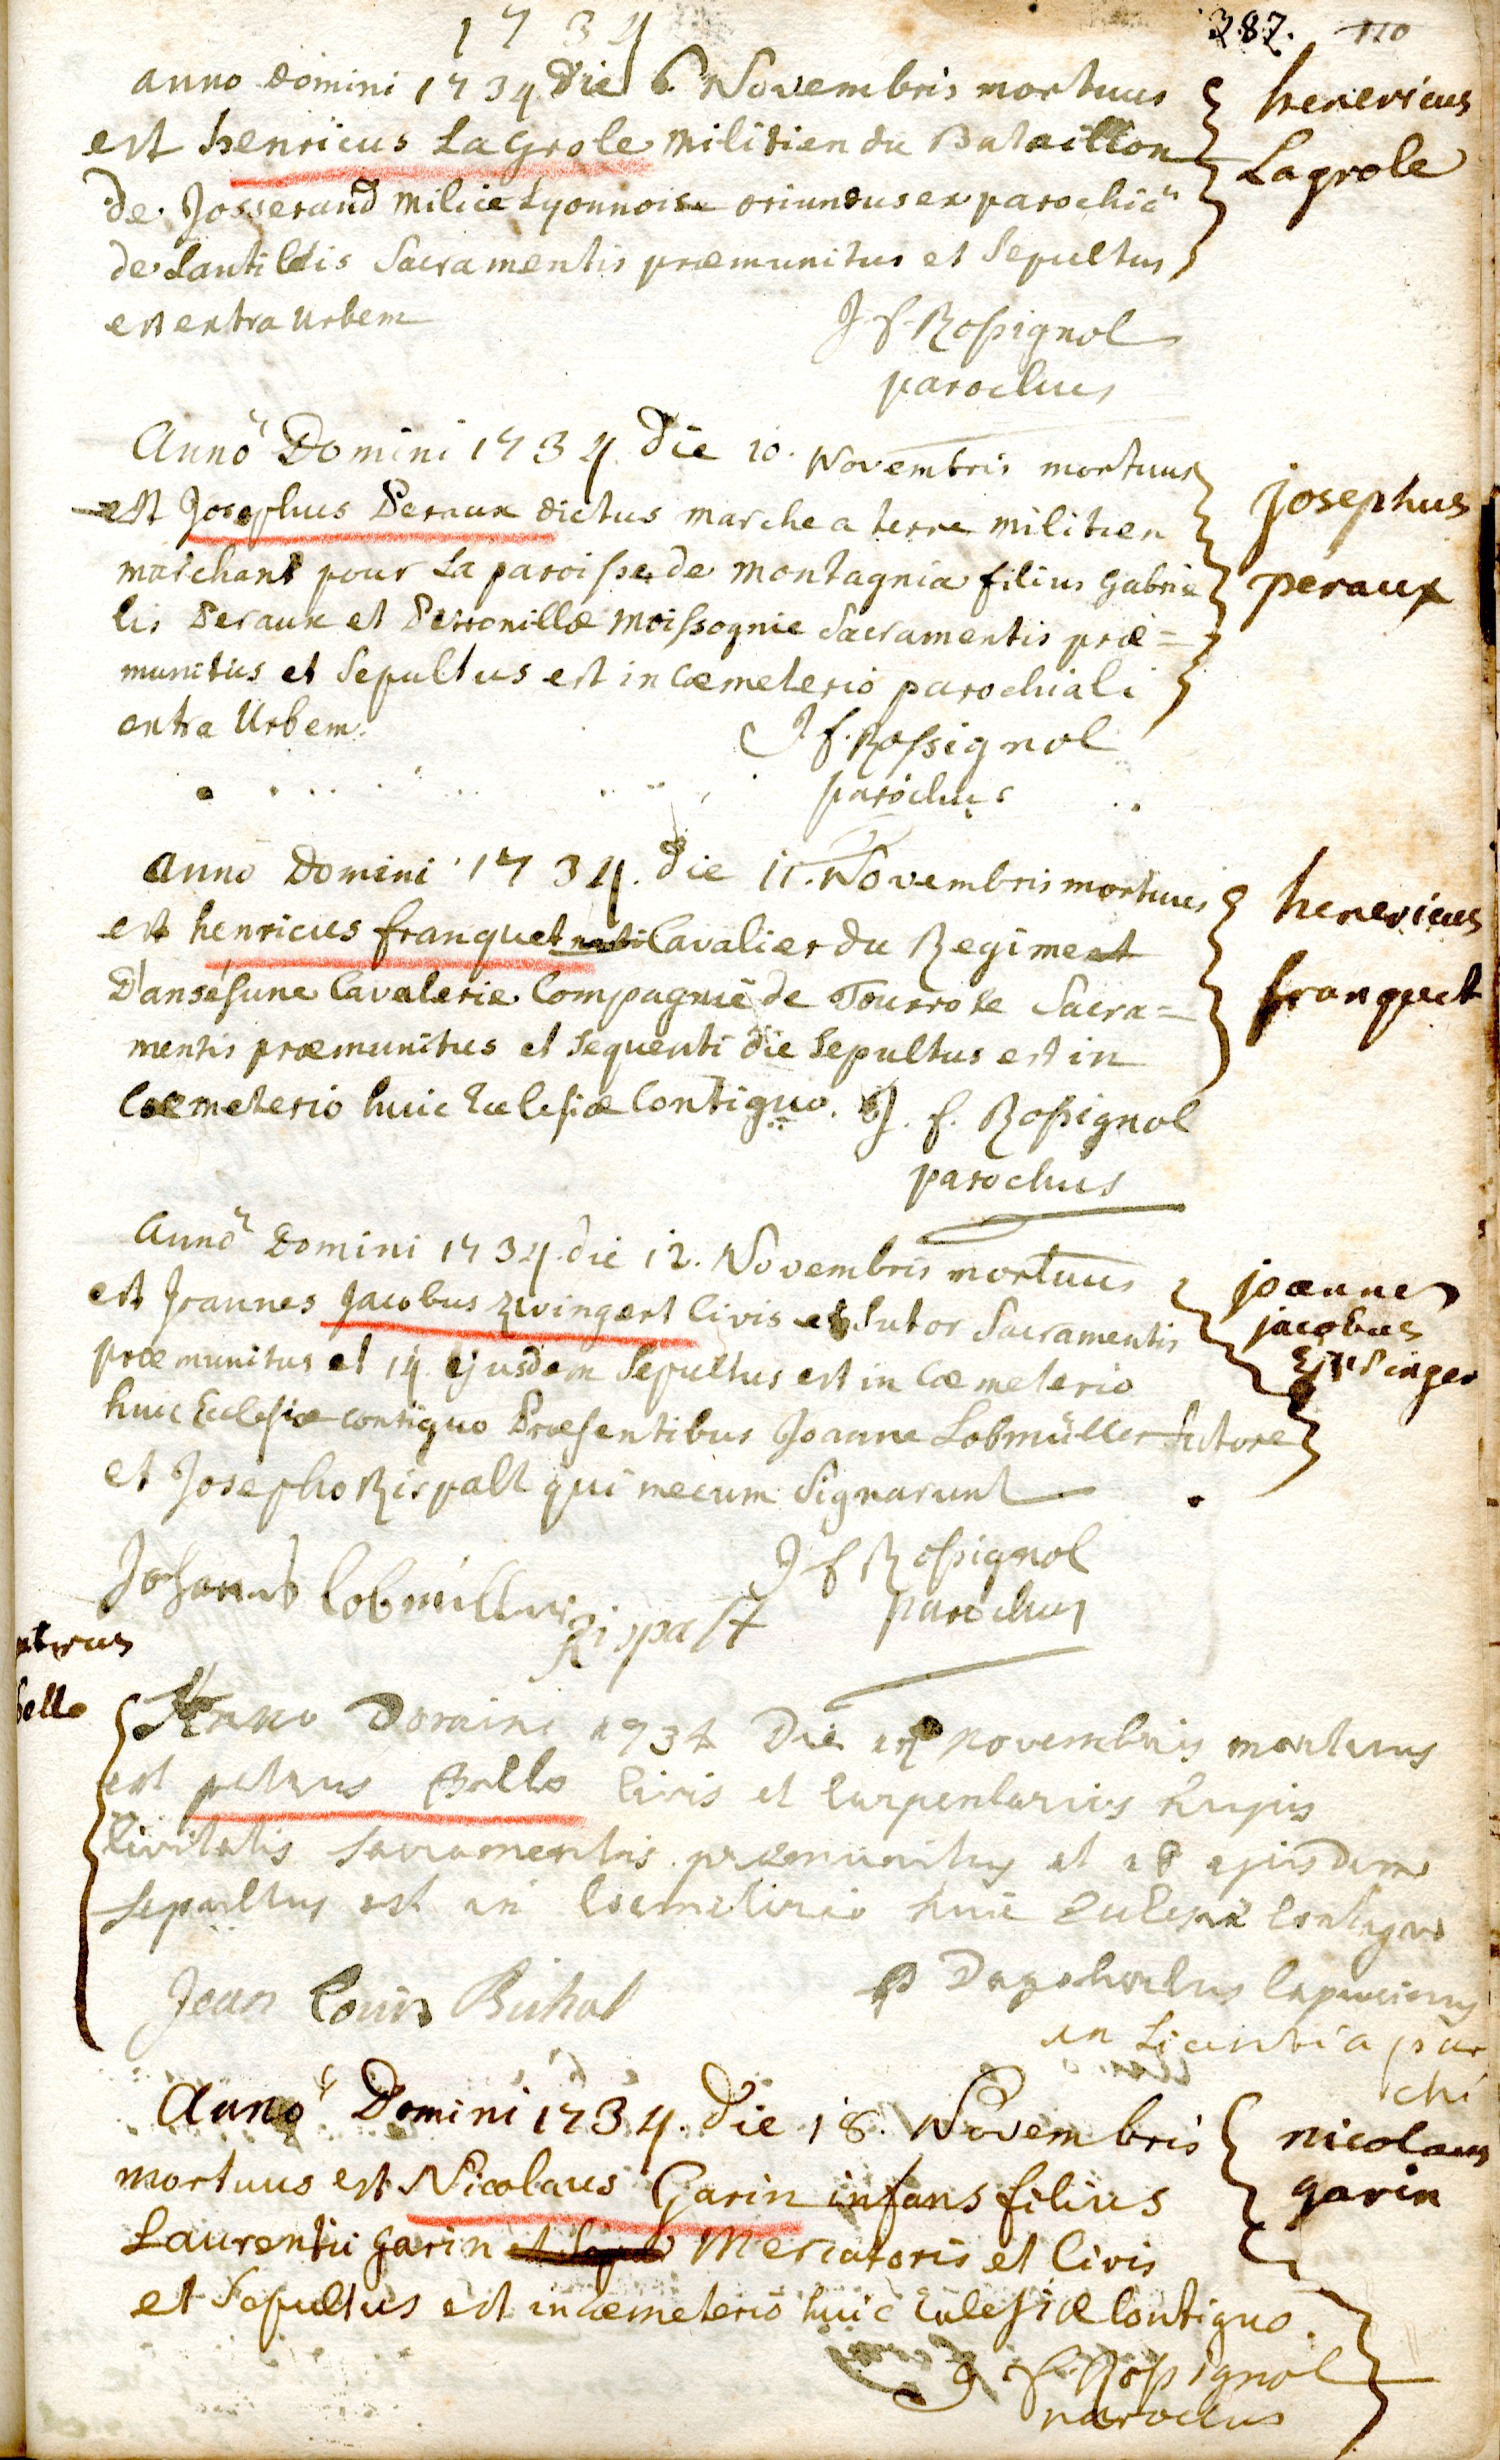 1734
387. 110
anno Domini 1734 die 6. Novembris mortuus
est henricus LaGrole militien du Bataillon
de Josserand milice Lyonnoise oriundus ex parochiâ
de Lantildis Sacramentis præmunitus et Sepultus
est extra Urbem
J f Rossignol
parochus
henericus
Lagrole
Annô Domini 1734. die 10. Novembris mortuus
est Josephus Peraux dictus marche a terre militien
marchant pour La paroisse de montagnia filius Gabrie
lis Peraux et Petronillæ Moissognie Sacramentis præ=
munitus et Sepultus est in Cæmeterio parochiali
extra Urbem.
J. f. Rossignol
parochus
josephus
peraux
anno Domini 1734. die 11. Novembris mortuus
est henricus franquet Cavalier du Regiment
D'ansésune Cavalerie Compagnie de Sacra=
mentis præmunitus et Sequenti die Sepultus est in
Cæmeterio huic Ecclesiæ Contiguo. J. f. Rossignol
parochus
henericus
franquet
Annô Domini 1734. die 12. Novembris mortuus
est Joannes Jacobus Zwingert Civis et Sutor Sacramentis
præmunitus et 14 ejusdem Sepultus est in Cæmeterio
huic Ecclesiæ contiguo Præsentibus Joanne Lobmüller Sutore
et Josepho Rispalt qui mecum Signarunt
J f Rossignol
parochus
Johannes Lobmiller Rispalt
joannes
jacobus
Petrus
bello
Anno Domini 1734 Die novembris mortuus
est petrus Bello Civis et Carpentarius hujus
Civitatis Sacramentis præmunitus et 18 ejusdem
Sepultus est in Coemeterio huic Ecclesiæ Contiguo
Jean Louis Buhot
P Capucinus
in Licentia paro
chi
Annô Domini 1734. die 18. Novembris
mortuus est Nicolaus Garin infans filius
Laurentii Garin Mercatoris et Civis
et Sepultus est in cæmeterio huic Ecclesiæ Contiguo.
J f. Rossignol
parochus
nicolaus
garin